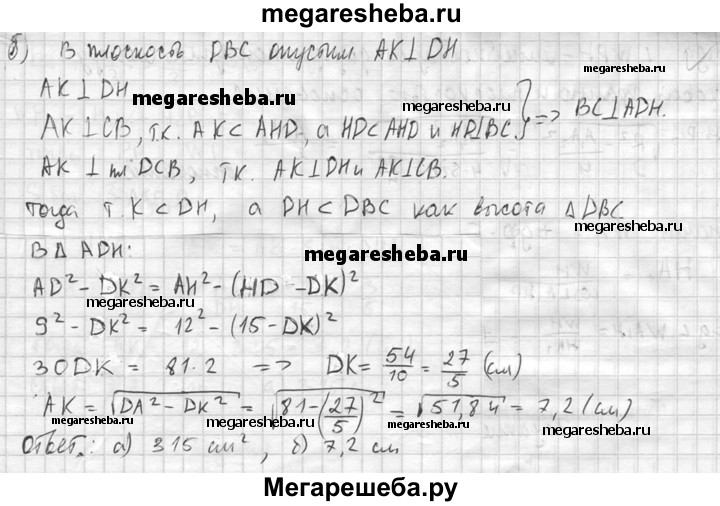 megaresheba.ru
б) В плоскость DBC опустим AK⊥DH
AK⊥DH
megaresheba.ru
megaresheba.ru
AK⊥CB, т.к. AK⊂AHD, а HD⊂AHD и HD⊥BC } => BC⊥ADH.
AK ⊥ пл DCB, т.к. AK⊥DH и AK⊥CB.
тогда т. K⊂DH, а DH⊂DBC как высота △DBC
В △ ADH:
megaresheba.ru
AD² - DK² = AH² - (HD - DK)²
megaresheba.ru
9² - DK² = 12² - (15 - DK)²
30DK = 81·2 => DK = 54/10 = 27/5 (см)
AK = √(DA² - DK²) = √(81 - (27/5)²) = √51,84 = 7,2 (см)
megaresheba.ru megaresheba.ru megaresheba.ru
Ответ: а) 315 см², б) 7,2 см
Мегарешеба.ру